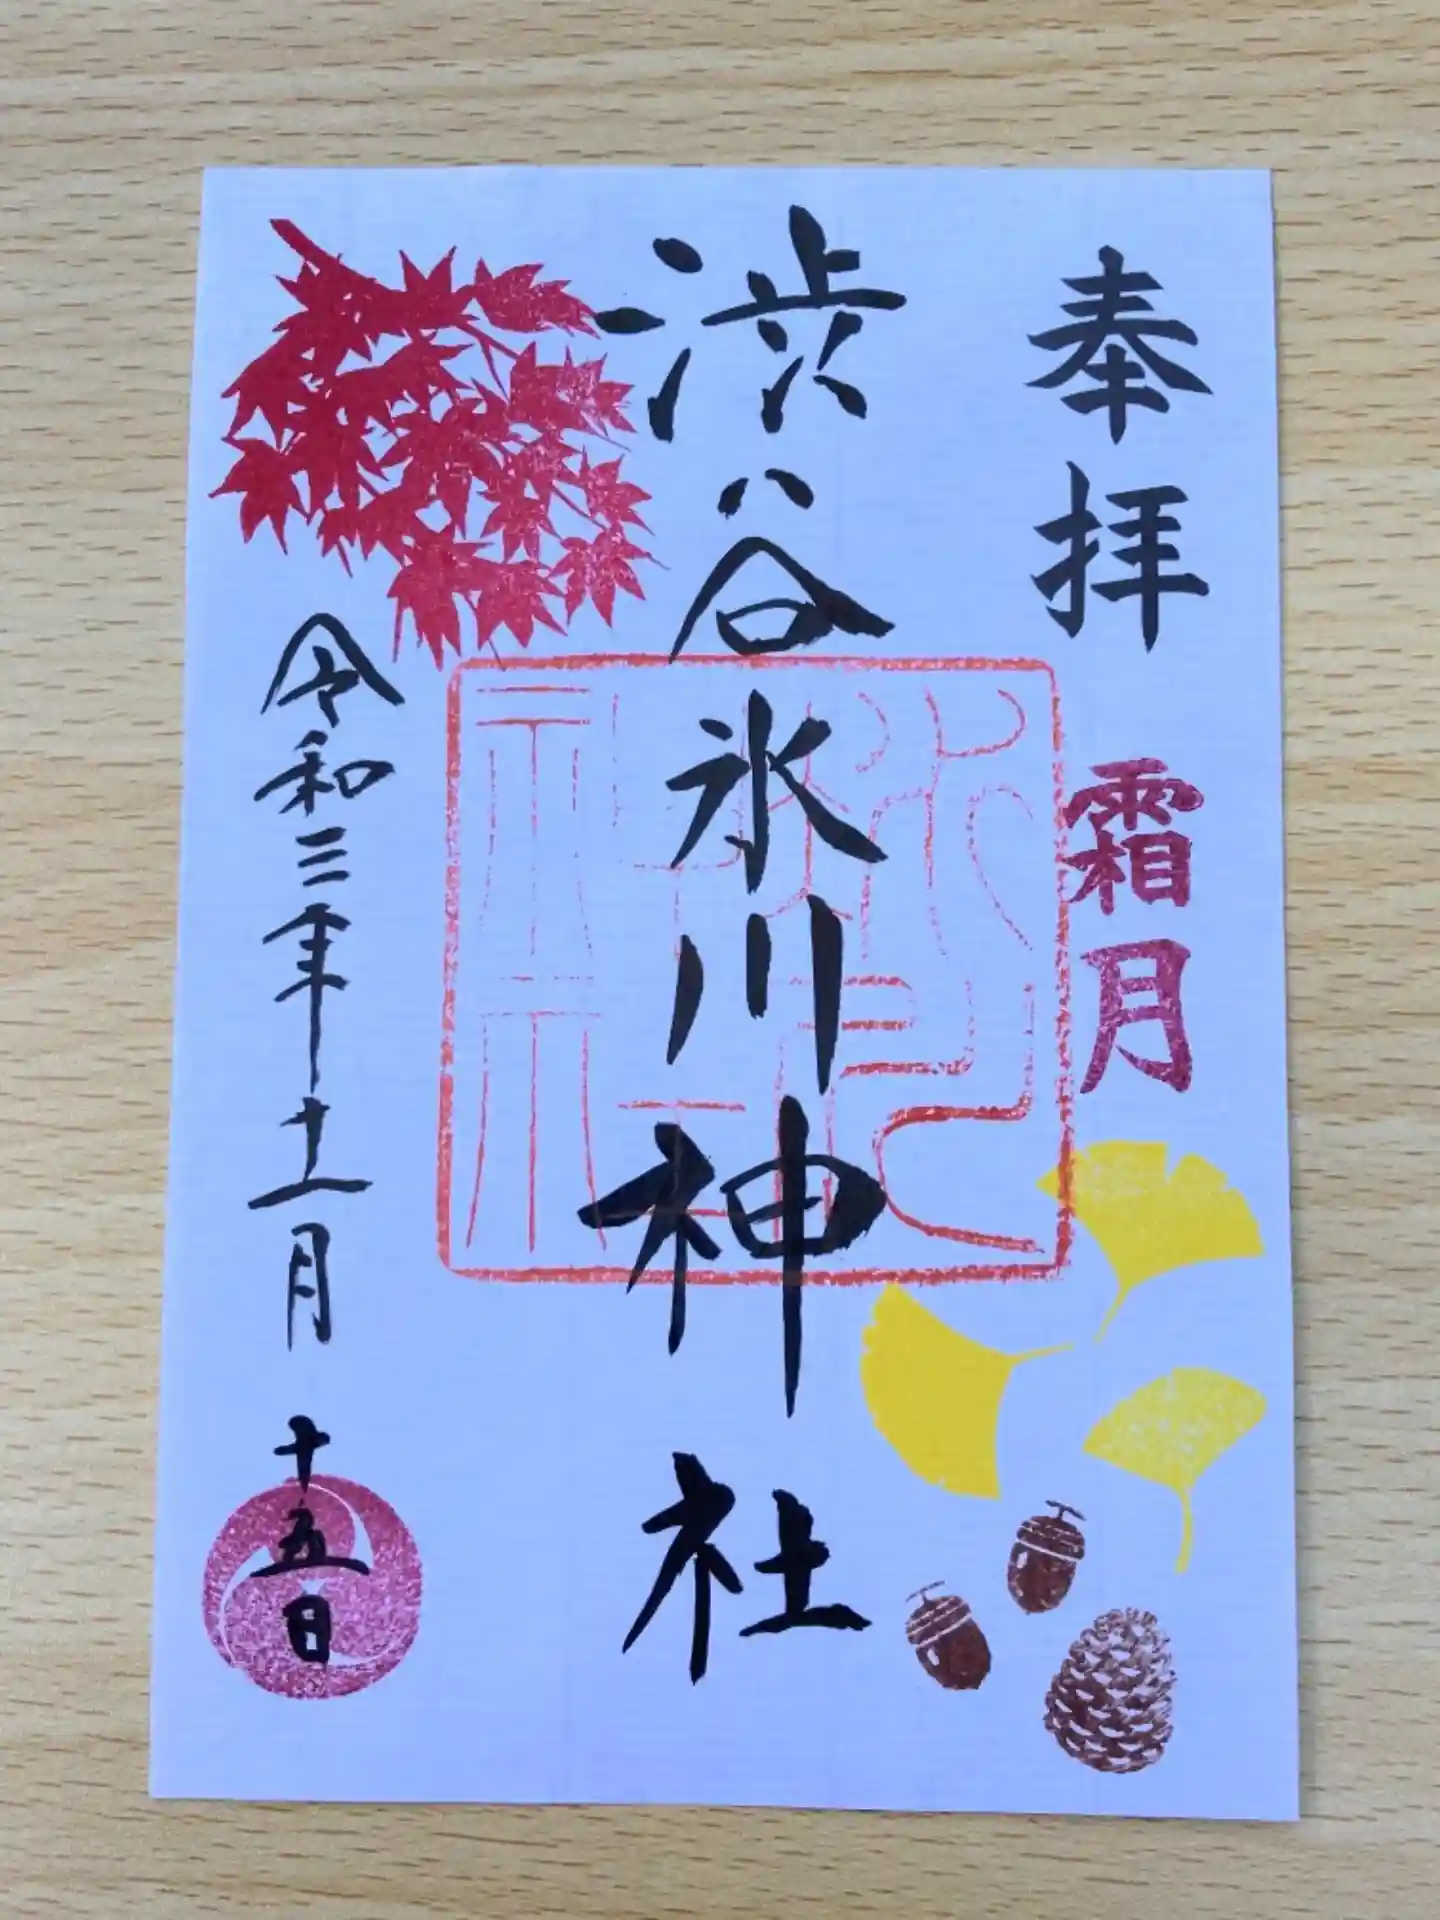 奉拝
霜月
渋谷氷川神社
令和三年十一月
十五日